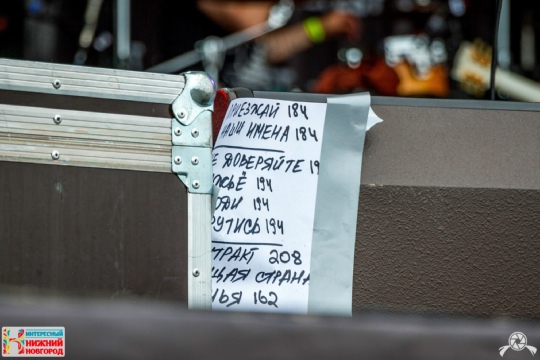 ПРИЕЗЖАЙ 184
НАШИ ИМЕНА 184
НЕ ДОВЕРЯЙТЕ 19
ЖЬЁ 194
194
РУТИСЬ 194
ТРАКТ 208
ЩАЯ СТРАНА
ЬЯ 162
ИНТЕРЕСНЫЙ
НИЖНИЙ
НОВГОРОД